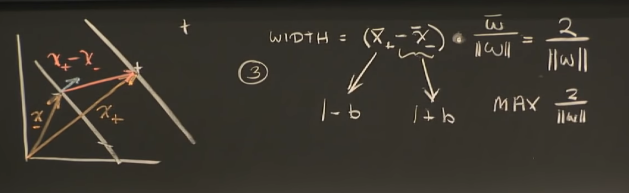 +
x₊-x₋
x₋
x₊
③
WIDTH = (x̄₊-x̄₋) • w̄/||w|| = 2/||w||
1-b 1+b
MAX 2/||w||